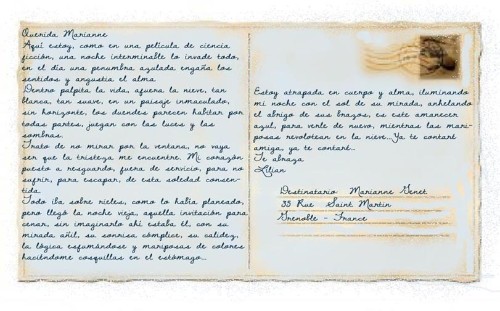 Querida Marianne
Aquí estoy, como en una película de ciencia
ficción, una noche interminable lo invade todo,
en el día una penumbra azulada engaña los
sentidos y angustia el alma.
Dentro palpita la vida, afuera la nieve, tan
blanca, tan suave, en un paisaje inmaculado,
sin horizonte, los duendes parecen habitar por
todas partes, juegan con las luces y las
sombras.
Trato de no mirar por la ventana, no vaya
ser que la tristeza me encuentre. Mi corazón
puesto a resguardo, fuera de servicio, para no
sufrir, para escapar, de esta soledad consen-
tida.
Todo iba sobre rieles, como lo había planeado,
pero llegó la noche vieja, aquella invitación para
cenar, sin imaginarlo ahí estaba él, con su
mirada añil, su sonrisa cómplice, su calidez,
la lógica esfumándose y mariposas de colores
haciéndome cosquillas en el estómago...
Estoy atrapada en cuerpo y alma, iluminando
mi noche con el sol de su mirada, anhelando
el abrigo de sus brazos, es este amanecer
azul, para verle de nuevo, mientras las mari-
posas revolotean en la nieve...Ya te contaré
amiga, ya te contaré..
Te abraza
Lilian
Destinatario Marianne Genet
35 Rue Saint Martin
Grenoble - France